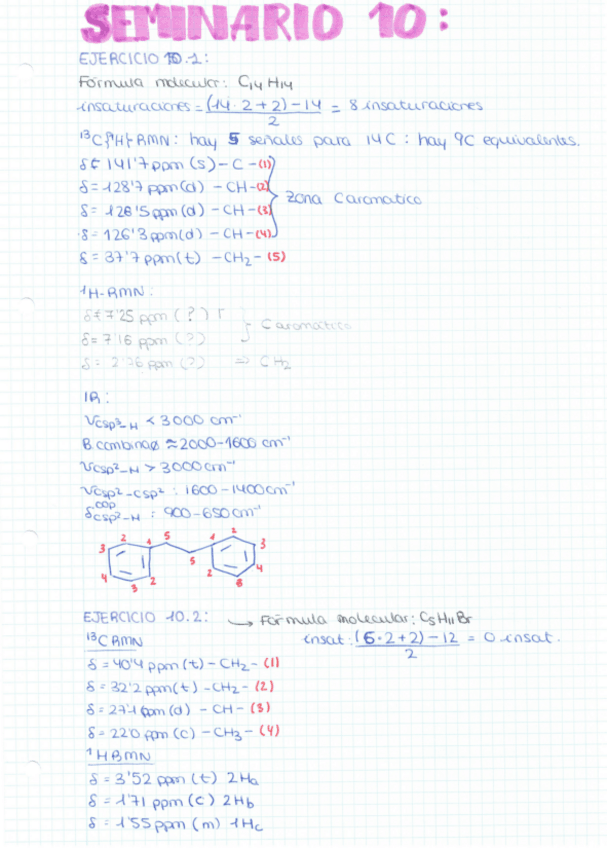 SEMINARIO 10:
EJERCICIO 10.1:
Fórmula molecular: C14 H14
insaturaciones = (14·2+2)-14 / 2 = 8 insaturaciones
13C{1H}-RMN: hay 5 señales para 14C: hay 9C equivalentes.
δ= 141'7 ppm (s) - C - (1)
δ= 128'7 ppm (d) - CH - (2)
δ= 128'5 ppm (d) - CH - (3)
δ= 126'3 ppm (d) - CH - (4)
Zona Caromático
δ= 37'7 ppm (t) - CH2 - (5)
1H-RMN:
δ= 7'25 ppm (?)
δ= 7'16 ppm (?)
Caromático
δ= 2'76 ppm (?) ⇒ CH2
IR:
νCsp3-H < 3000 cm-1
B.combinaø ≈ 2000-1600 cm-1
νCsp2-H > 3000 cm-1
νCsp2-Csp2 : 1600-1400 cm-1
δoop Csp2-H : 900-650 cm-1
3 2 1 5 1 2 3
4 3 2 5 2 6 4
EJERCICIO 10.2: → Fórmula molecular: C5 H11 Br
13C RMN
insat: (5·2+2)-12 / 2 = 0 insat.
δ= 40'4 ppm (t) - CH2 - (1)
δ= 32'2 ppm (t) - CH2 - (2)
δ= 27'1 ppm (d) - CH - (3)
δ= 22'0 ppm (c) - CH3 - (4)
1H RMN
δ= 3'52 ppm (t) 2Ha
δ= 1'71 ppm (c) 2Hb
δ= 1'55 ppm (m) 1Hc